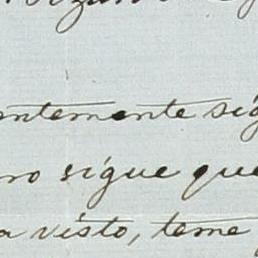 ntemente sig
no sigue que
a visto, teme